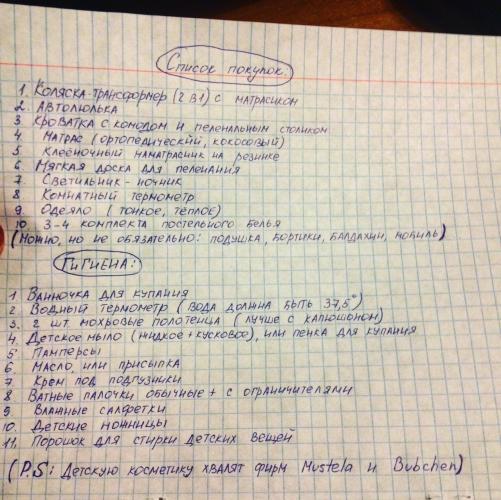 Список покупок.
1. Коляска-трансформер (2 в 1) с матрасиком
2. Автолюлька
3. Кроватка с комодом и пеленальным столиком
4. Матрас (ортопедический, кокосовый)
5. Клеёночный наматрасник на резинке
6. Мягкая доска для пеленания
7. Светильник-ночник
8 Комнатный термометр
9. Одеяло (тонкое, теплое)
10. 3-4 комплекта постельного белья
(Можно, но не обязательно: подушка, бортики, балдахин, мобиль)
Гигиена:
1 Ванночка для купания
2. Водный термометр (вода должна быть 37,5°)
3. 2 шт. махровые полотенца (лучше с капюшоном)
4. Детское мыло (жидкое + кусковое), или пенка для купания
5 Памперсы
6 Масло, или присыпка
7 Крем под подгузники
8 Ватные палочки обычные + с ограничителями
9 Влажные салфетки
10. Детские ножницы
11. Порошок для стирки детских вещей
(P.S: Детскую косметику хвалят фирм Mustela и Bubchen)